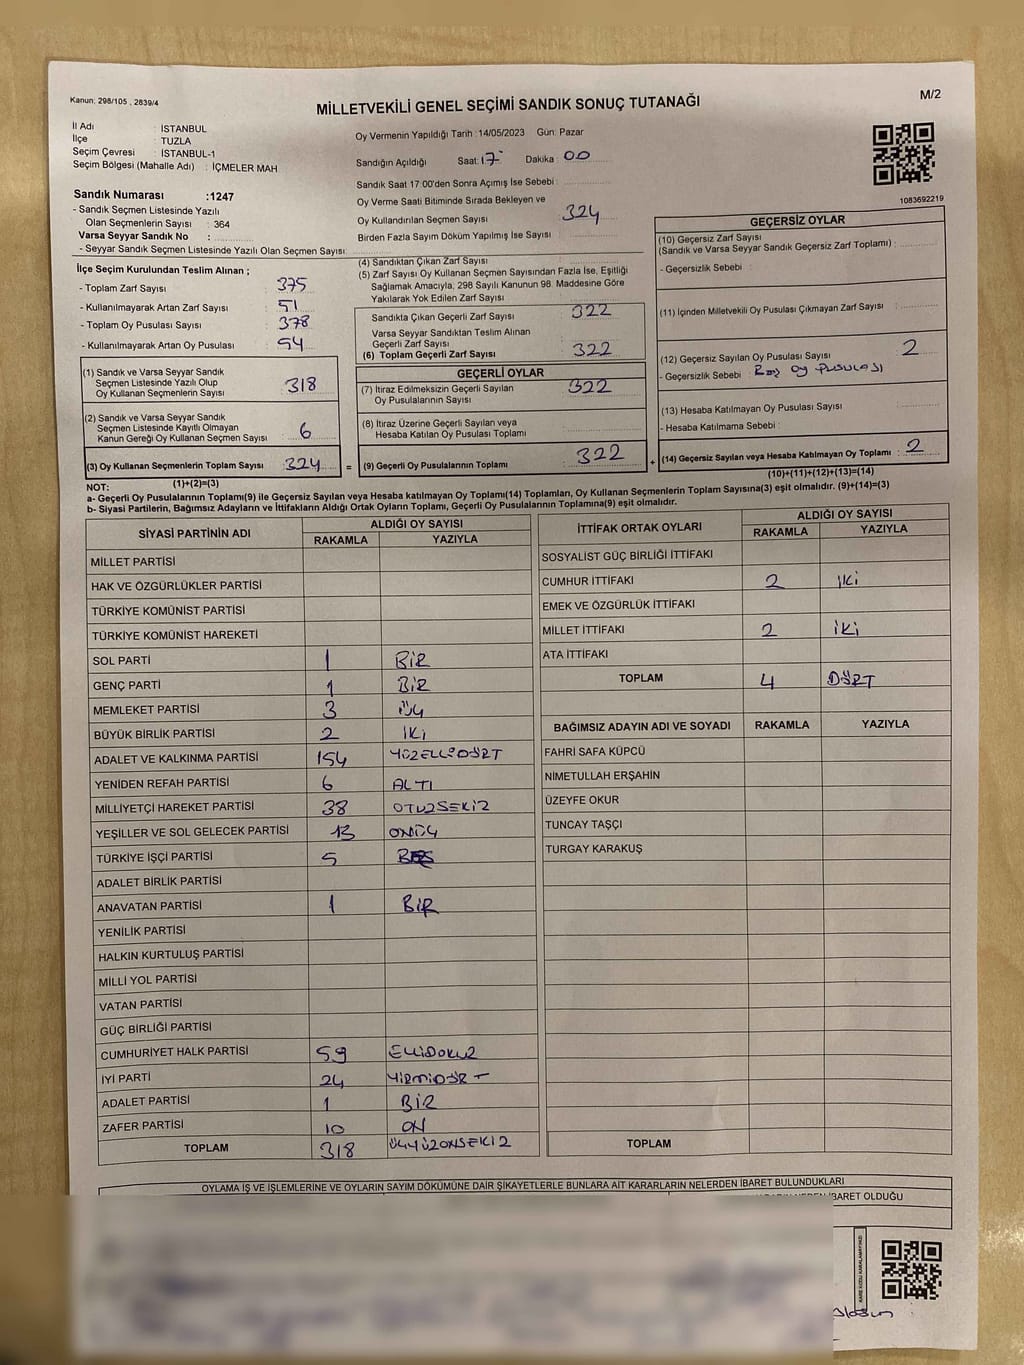 Kanun: 298/105 , 2839/4
MİLLETVEKİLİ GENEL SEÇİMİ SANDIK SONUÇ TUTANAĞI
M/2
İl Adı : İSTANBUL
İlçe : TUZLA
Seçim Çevresi : İSTANBUL-1
Seçim Bölgesi (Mahalle Adı) : İÇMELER MAH
Sandık Numarası :1247
- Sandık Seçmen Listesinde Yazılı
Olan Seçmenlerin Sayısı : 364
Varsa Seyyar Sandık No :
- Seyyar Sandık Seçmen Listesinde Yazılı Olan Seçmen Sayısı
Oy Vermenin Yapıldığı Tarih : 14/05/2023 Gün: Pazar
Sandığın Açıldığı Saat: 17 Dakika : 00
Sandık Saat 17:00'den Sonra Açımış İse Sebebi :
Oy Verme Saati Bitiminde Sırada Bekleyen ve
Oy Kullandırılan Seçmen Sayısı : 324
Birden Fazla Sayım Döküm Yapılmış İse Sayısı :
1083692219
İlçe Seçim Kurulundan Teslim Alınan ;
- Toplam Zarf Sayısı : 375
- Kullanılmayarak Artan Zarf Sayısı : 51
- Toplam Oy Pusulası Sayısı : 378
- Kullanılmayarak Artan Oy Pusulası : 54
(1) Sandık ve Varsa Seyyar Sandık
Seçmen Listesinde Yazılı Olup
Oy Kullanan Seçmenlerin Sayısı : 318
(2) Sandık ve Varsa Seyyar Sandık
Seçmen Listesinde Kayıtlı Olmayan
Kanun Gereği Oy Kullanan Seçmen Sayısı : 6
(3) Oy Kullanan Seçmenlerin Toplam Sayısı : 324
(1)+(2)=(3)
(4) Sandıktan Çıkan Zarf Sayısı :
(5) Zarf Sayısı Oy Kullanan Seçmen Sayısından Fazla İse, Eşitliği
Sağlamak Amacıyla, 298 Sayılı Kanunun 98. Maddesine Göre
Yakılarak Yok Edilen Zarf Sayısı :
Sandıkta Çıkan Geçerli Zarf Sayısı : 322
Varsa Seyyar Sandıktan Teslim Alınan
Geçerli Zarf Sayısı :
(6) Toplam Geçerli Zarf Sayısı : 322
GEÇERLİ OYLAR
(7) İtiraz Edilmeksizin Geçerli Sayılan : 322
Oy Pusulalarının Sayısı
(8) İtiraz Üzerine Geçerli Sayılan veya
Hesaba Katılan Oy Pusulası Toplamı :
= (9) Geçerli Oy Pusulalarının Toplamı : 322
GEÇERSİZ OYLAR
(10) Geçersiz Zarf Sayısı
(Sandık ve Varsa Seyyar Sandık Geçersiz Zarf Toplamı) :
- Geçersizlik Sebebi :
(11) İçinden Milletvekili Oy Pusulası Çıkmayan Zarf Sayısı :
(12) Geçersiz Sayılan Oy Pusulası Sayısı : 2
- Geçersizlik Sebebi : Boş OY PUSULASI
(13) Hesaba Katılmayan Oy Pusulası Sayısı :
- Hesaba Katılmama Sebebi :
+ (14) Geçersiz Sayılan veya Hesaba Katılmayan Oy Toplamı : 2
(10)+(11)+(12)+(13)=(14)
NOT:
a- Geçerli Oy Pusulalarının Toplamı(9) ile Geçersiz Sayılan veya Hesaba katılmayan Oy Toplamı(14) Toplamları, Oy Kullanan Seçmenlerin Toplam Sayısına(3) eşit olmalıdır. (9)+(14)=(3)
b- Siyasi Partilerin, Bağımsız Adayların ve İttifakların Aldığı Ortak Oyların Toplamı, Geçerli Oy Pusulalarının Toplamına(9) eşit olmalıdır.
SİYASİ PARTİNİN ADI ALDIĞI OY SAYISI
RAKAMLA YAZIYLA
MİLLET PARTİSİ
HAK VE ÖZGÜRLÜKLER PARTİSİ
TÜRKİYE KOMÜNİST PARTİSİ
TÜRKİYE KOMÜNİST HAREKETİ
SOL PARTİ 1 BİR
GENÇ PARTİ 1 BİR
MEMLEKET PARTİSİ 3 ÜÇ
BÜYÜK BİRLİK PARTİSİ 2 İKİ
ADALET VE KALKINMA PARTİSİ 154 YÜZELLİDÖRT
YENİDEN REFAH PARTİSİ 6 ALTI
MİLLİYETÇİ HAREKET PARTİSİ 38 OTUZSEKİZ
YEŞİLLER VE SOL GELECEK PARTİSİ 13 ONÜÇ
TÜRKİYE İŞÇİ PARTİSİ 5 BEŞ
ADALET BİRLİK PARTİSİ
ANAVATAN PARTİSİ 1 BİR
YENİLİK PARTİSİ
HALKIN KURTULUŞ PARTİSİ
MİLLİ YOL PARTİSİ
VATAN PARTİSİ
GÜÇ BİRLİĞİ PARTİSİ
CUMHURİYET HALK PARTİSİ 59 ELLİDOKUZ
İYİ PARTİ 24 YİRMİDÖRT
ADALET PARTİSİ 1 BİR
ZAFER PARTİSİ 10 ON
TOPLAM 318 ÜÇYÜZONSEKİZ
İTTİFAK ORTAK OYLARI ALDIĞI OY SAYISI
RAKAMLA YAZIYLA
SOSYALİST GÜÇ BİRLİĞİ İTTİFAKI
CUMHUR İTTİFAKI 2 İKİ
EMEK VE ÖZGÜRLÜK İTTİFAKI
MİLLET İTTİFAKI 2 İKİ
ATA İTTİFAKI
TOPLAM 4 DÖRT
BAĞIMSIZ ADAYIN ADI VE SOYADI RAKAMLA YAZIYLA
FAHRİ SAFA KÜPCÜ
NİMETULLAH ERŞAHİN
ÜZEYFE OKUR
TUNCAY TAŞÇI
TURGAY KARAKUŞ
TOPLAM
OYLAMA İŞ VE İŞLEMLERİNE VE OYLARIN SAYIM DÖKÜMÜNE DAİR ŞİKAYETLERLE BUNLARA AİT KARARLARIN NELERDEN İBARET BULUNDUKLARI
İBARET OLDUĞU
KARE KODU KARALAMAYINIZ!